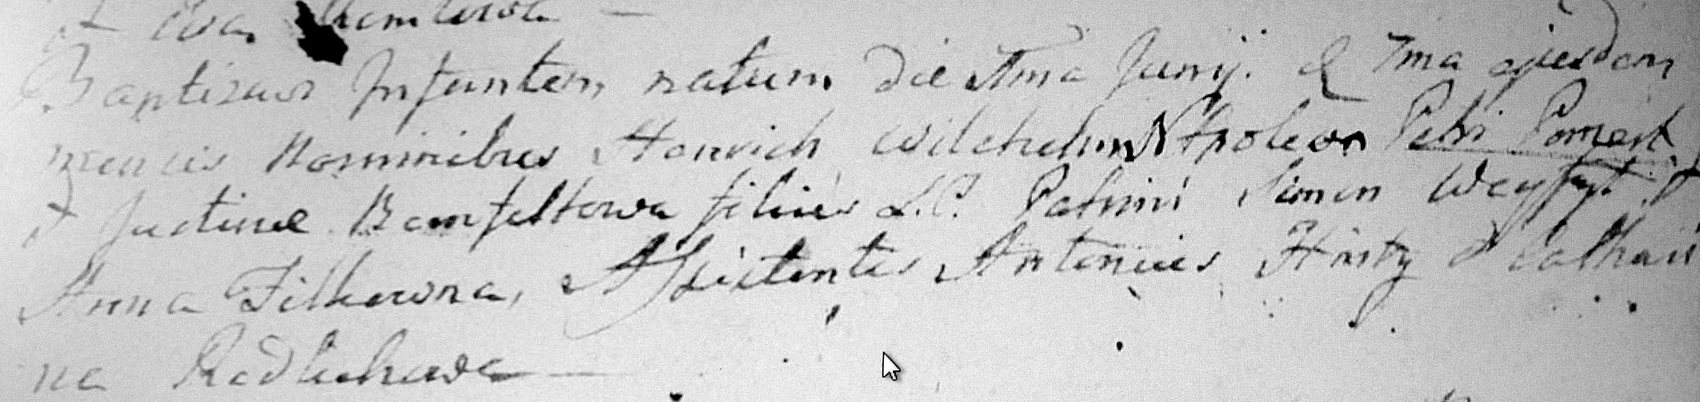 et Eva
Baptisavi Infantem natum die 1ma Junij. & 7ma ejusdem
mensis Nominibus Henrich Wilchelm Napoleon Petri Pomert
et Justinae Bemfeltowa filius L.C. Patrini Simon et
Anna Filkowna, Assistentes Antonius Hinty et Cathari
na Radlichowa